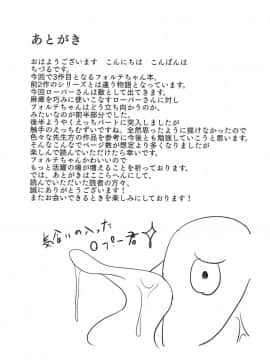 あとがき
おはようございます　こんにちは　こんばんは
ちづるです。
今回で3作目となるフォルテちゃん本。
前2作のシリーズとは違う物語となっています。
今回ローパーさんは敵として出てきます。
麻痺を巧みに使いこなすローパーさんに対し
フォルテちゃんはどう立ち向かうのか、
みたいなのが前半部分でした。
後半ようやくえっちパートに突入しましたが
触手のえっちむずいですね、全然思ったように描けなかったので
色々な先生方の作品を参考に今後とも勉強していこうと思います。
そんなこんなでページ数が想定より多くなりましたが
楽しんで読んでいただけたら幸いです。
フォルテちゃんかわいいので
もっと活躍の場が増えることを祈っております。
では、あとがきはここらへんにして、
読んでいただいた読者の方々、
誠にありがとうございます！
またお会いできるときを楽しみにしております！
気合いの入った
ロパー君